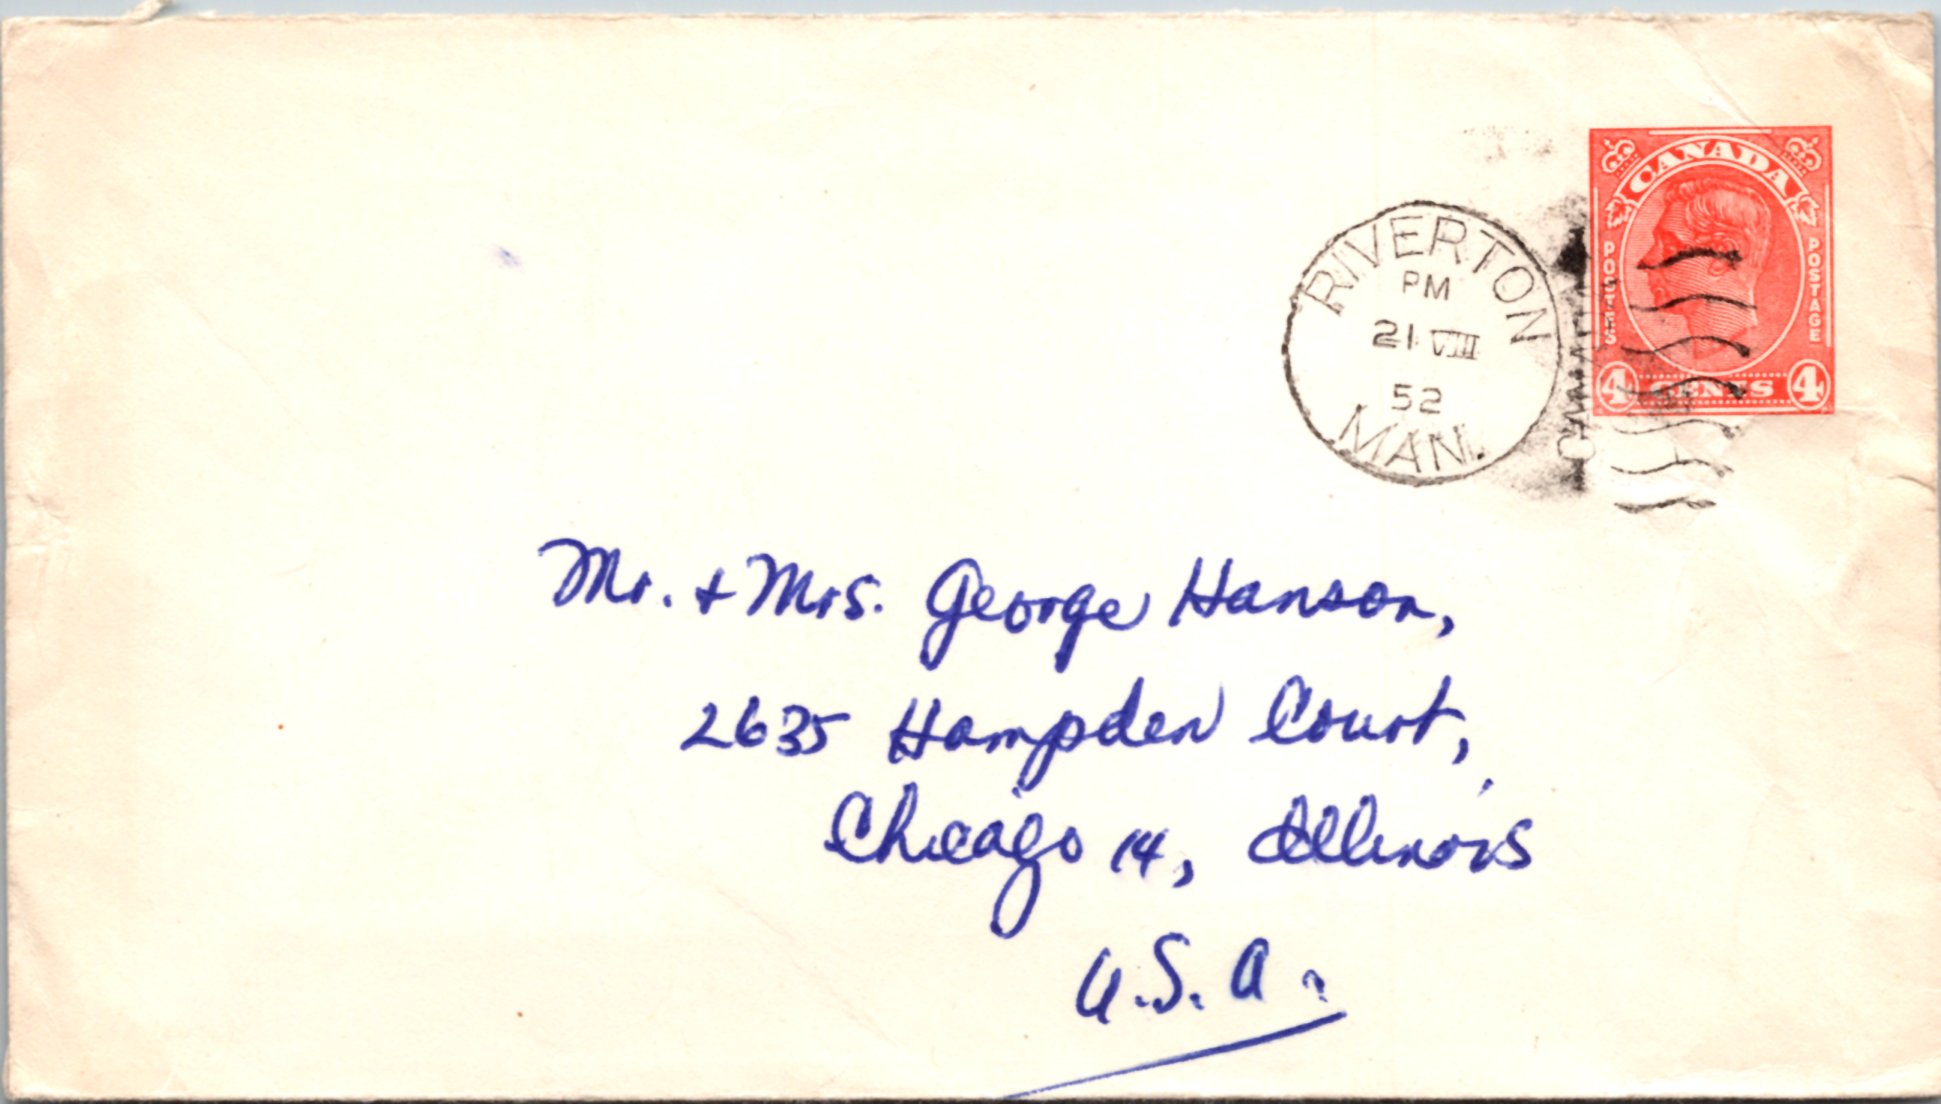 CANADA
POSTES
POSTAGE
4 CENTS 4
RIVERTON
PM
21 VIII
52
MAN.
Mr. + Mrs. George Hanson,
2635 Hampden Court,
Chicago 14, Illinois
U.S.A.